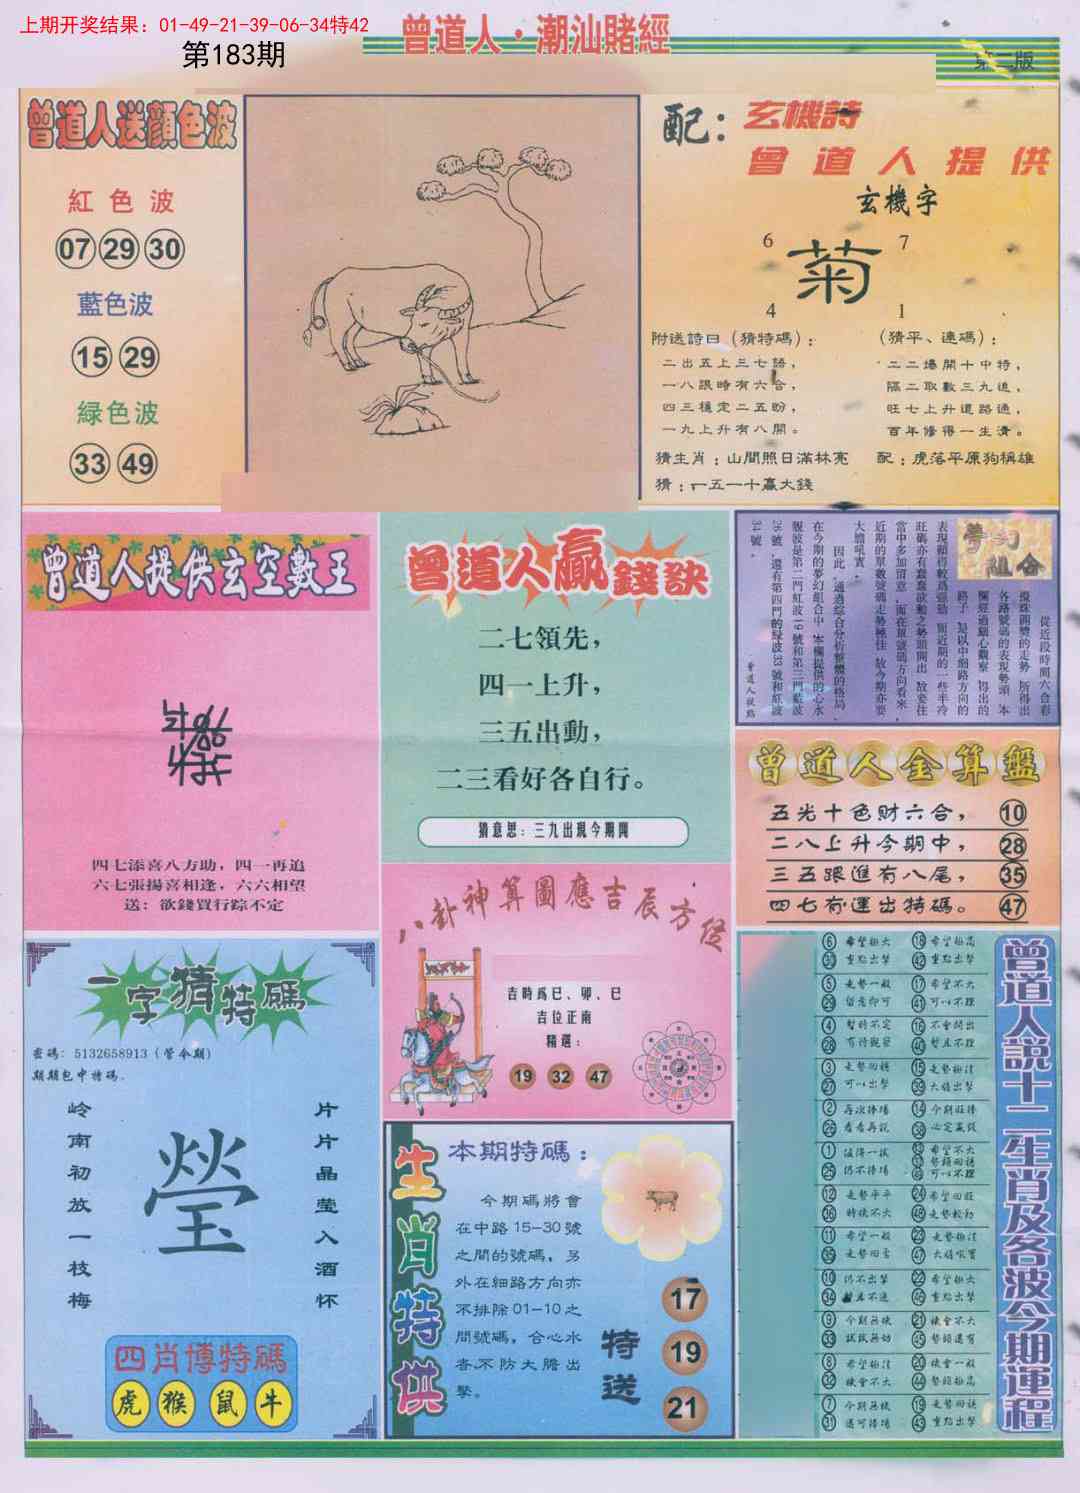 上期开奖结果：01-49-21-39-06-34特42
第183期
曾道人·潮汕賭經
第二版
曾道人送顔色波
紅色波
07 29 30
藍色波
15 29
緑色波
33 49
配：玄機詩
曾道人提供
玄機字
6 7
菊
4 1
附送詩曰（猜特碼）：
二出五上三七語，
一八跟時有六合，
四三穩定二五盼，
一九上升有八開。
（猜平、連碼）：
二二爆開十中特，
隔二取數三九追，
旺七上升道路通，
百年修得一生清。
猜生肖：山間照日滿林亮
配：虎落平原狗稱雄
猜：一五一十贏大錢
曾道人提供玄空數王
四七添喜八方助，四一再追
六七張揚喜相逢，六六相望
送：欲錢買行踪不定
曾道人贏錢訣
二七領先，
四一上升，
三五出動，
二三看好各自行。
猜意思：三九出現今期開
夢幻組合
從近段時間六合彩
攪珠開獎的走勢，所得出
各路號碼的表現勢頭，本
欄經過細心觀察，得出的
路子，是以中細路方向的
表現顯得較為强勁，而近期的一些半冷
旺碼亦有蠢蠢欲動之勢頭開出，故要在
當中多加留意，而在單號碼方向看來，
近期的單數號碼走勢極佳，故今期亦要
大膽吼實。
因此，通過綜合分析整體的格局，
在今期的夢幻組合中，本欄提供的心水
靚波是第二門紅波19號和第三門藍波
26號，還有第四門的緑波33號和紅波
34號。
曾道人金算盤
五光十色财六合， 10
二八上升今期中， 28
三五跟進有八尾， 35
四七有運出特碼。 47
八卦神算圖應吉辰方位
吉時爲巳、卯、巳
吉位正南
精選：
19 32 47
一字猜特碼
密碼：5132658913（管今期）
期期包中特碼.
岭南初放一枝梅
瑩
片片晶莹入酒怀
四肖博特碼
虎 猴 鼠 牛
生肖特供
本期特碼：
今期碼將會
在中路15-30號
之間的號碼，另
外在細路方向亦
不排除01-10之
間號碼，合心水
者不防大膽出
擊。
特送
17
19
21
曾道人說十二生肖及各波今期運程
6 希望極大 18 希望極高
30 重點出擊 42 重點出擊
5 走勢一般 17 希望不大
29 留意即可 41 可以不理
4 暫時不定 16 不會開出
28 有待觀察 40 暫且不理
3 走勢回穩 15 走勢極佳
27 可以出擊 39 大膽出擊
2 再次捧場 14 今期旺捧
26 看看再說 38 必定贏錢
1 值得一搏 13 希望不大
25 仍不捧場 37 勢頭回穩
49 可以不理
12 走勢平平 24 希望回旺
36 時機不大 48 走勢較勁
11 希望一般 23 走勢極佳
35 走勢回杳 47 大膽吼實
10 仍不出擊 22 希望極大
34 且不追 46 重點出擊
9 今期無機 21 機會不大
33 試試無妨 45 勢頭還有
8 希望極佳 20 機會一般
32 機會不大 44 勢頭極高
7 今期無機 19 走勢回穩
31 還可捧場 43 重點出擊